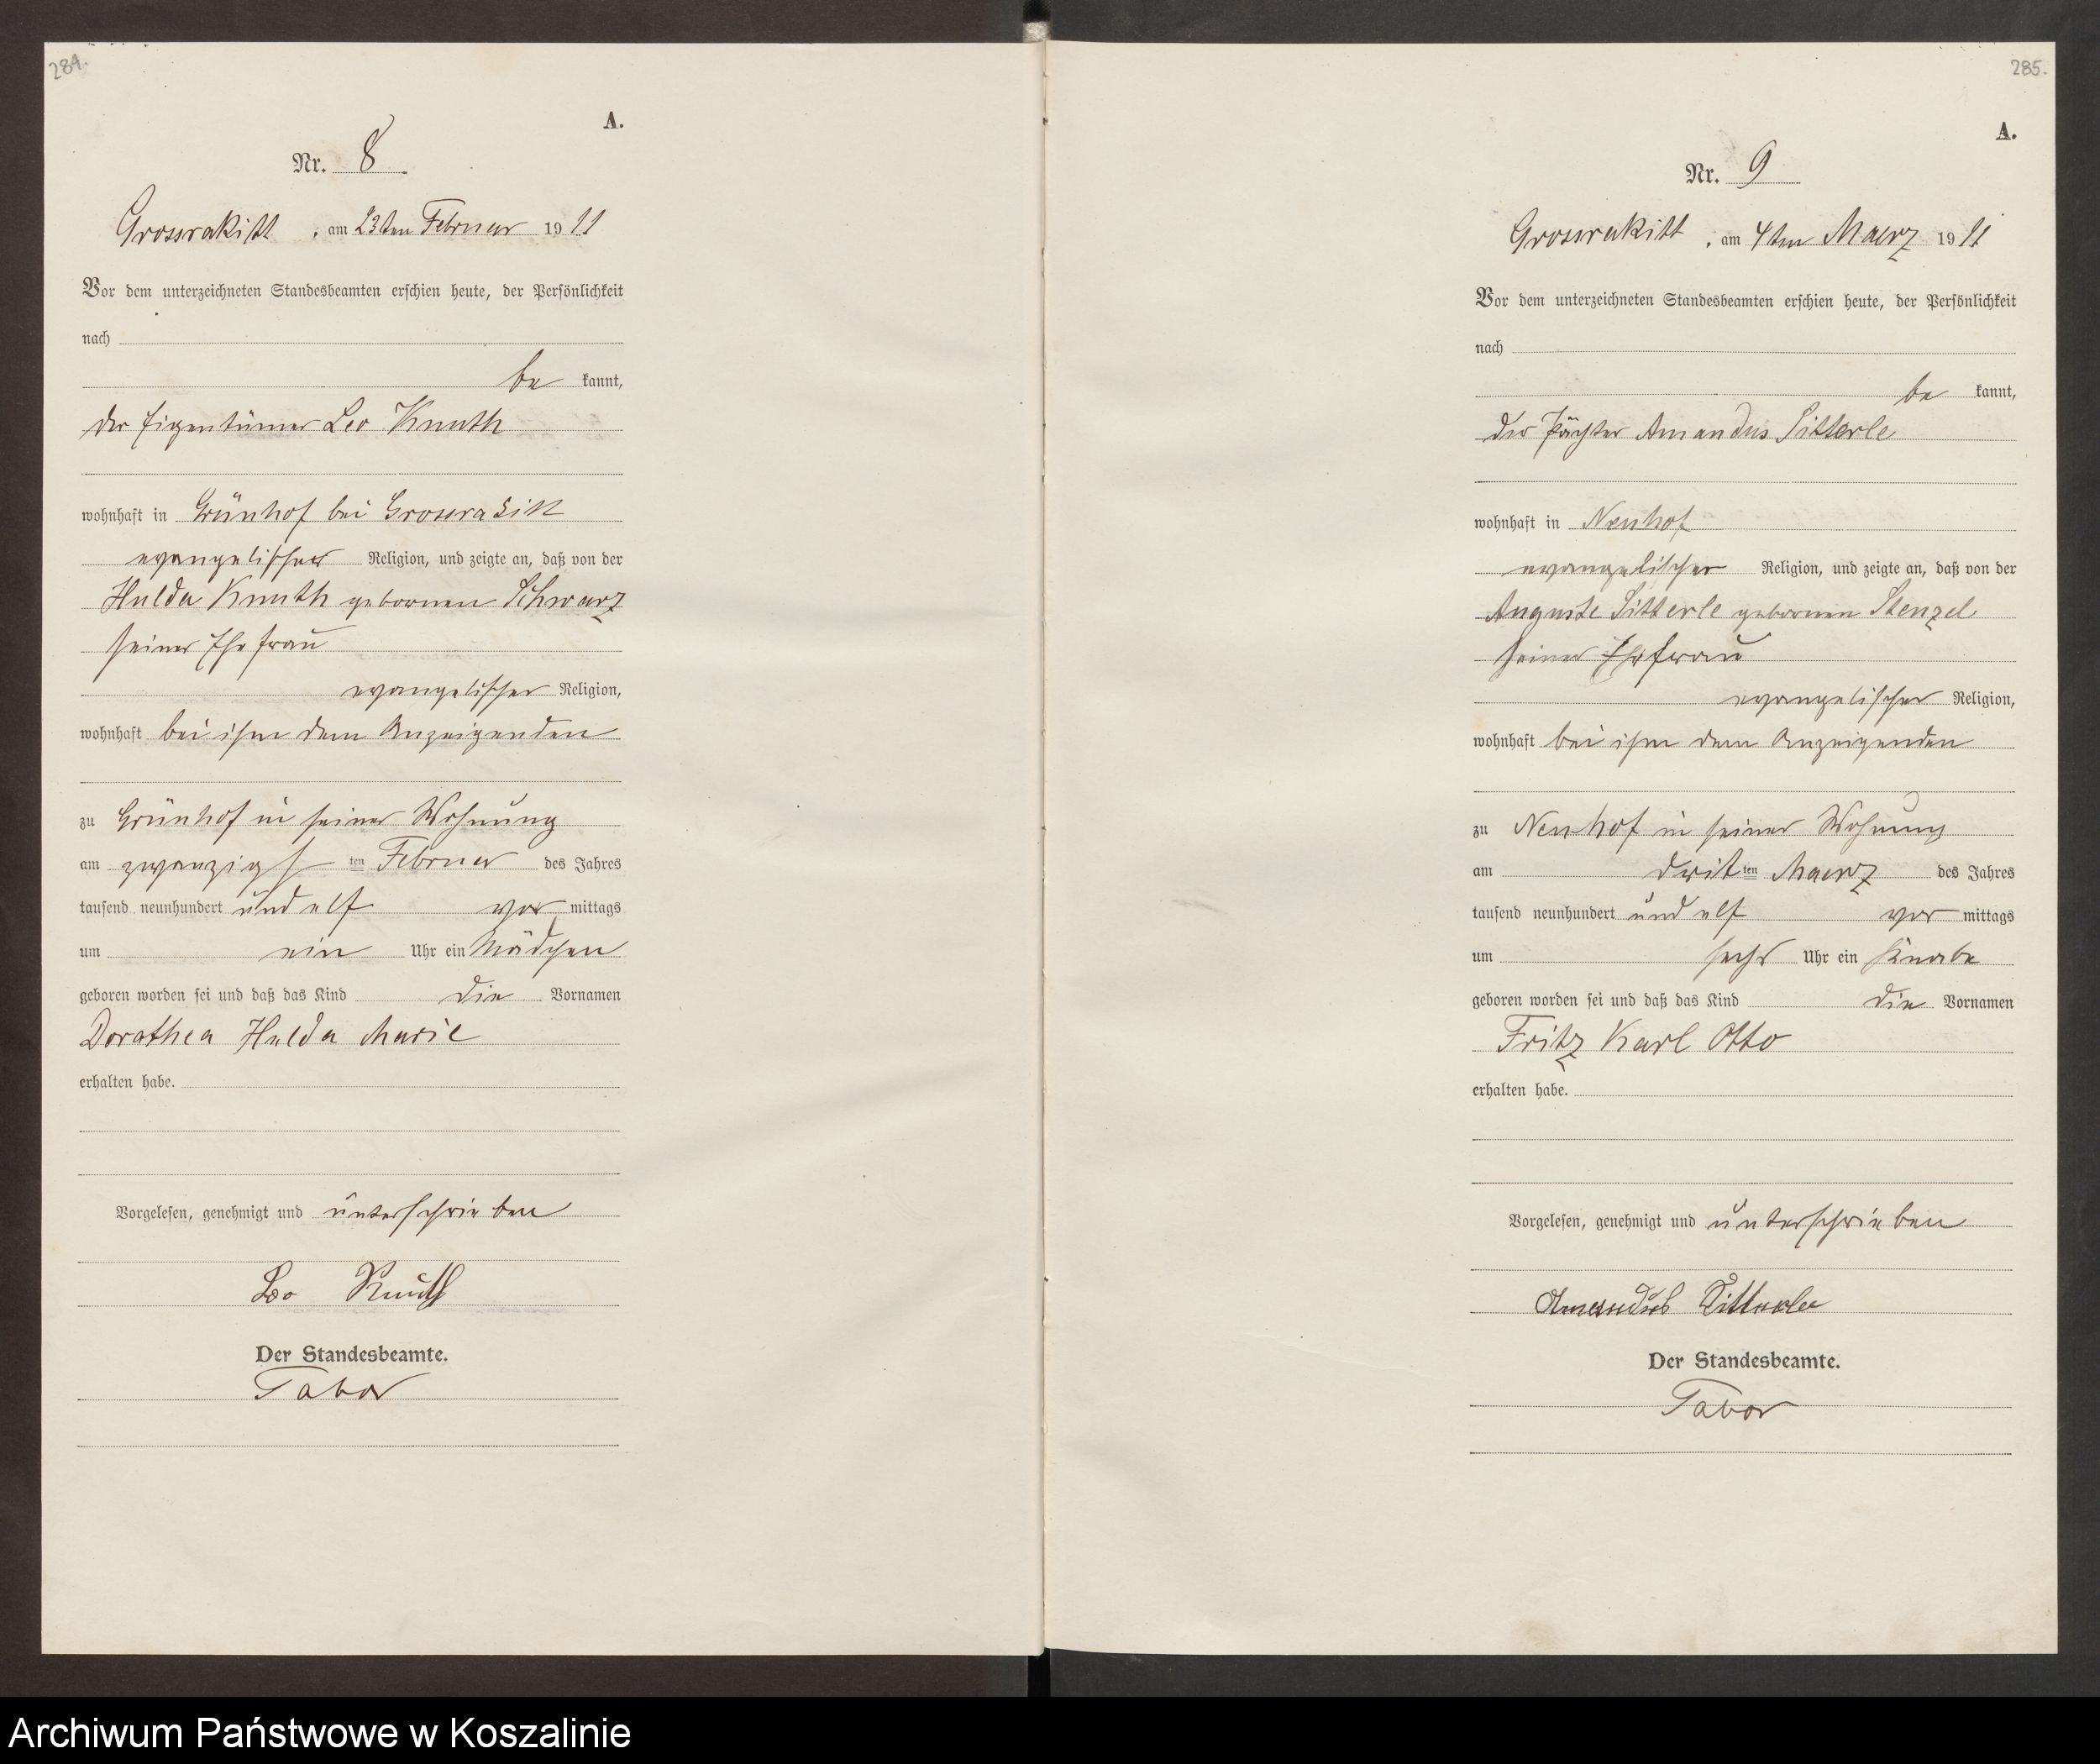 284.
A.
Nr. 8
Grossrakitt, am 23ten Februar 1911
Vor dem unterzeichneten Standesbeamten erschien heute, der Persönlichkeit
nach
be kannt,
der Eigentümer Leo Knuth
wohnhaft in Grünhof bei Grossrakitt
evangelischer Religion, und zeigte an, daß von der
Hulda Knuth geborenen Schwarz
seiner Ehefrau
evangelischer Religion,
wohnhaft bei ihm dem Anzeigenden
zu Grünhof in seiner Wohnung
am zwanzigsten Februar des Jahres
tausend neunhundert und elf vor mittags
um ein Uhr ein Mädchen
geboren worden sei und daß das Kind die Vornamen
Dorathea Hulda Marie
erhalten habe.
Vorgelesen, genehmigt und unterschrieben
Leo Knuth
Der Standesbeamte.
Tabor
285.
A.
Nr. 9
Grossrakitt, am 4ten Maerz 1911
Vor dem unterzeichneten Standesbeamten erschien heute, der Persönlichkeit
nach
be kannt,
der Pächter Amandus Sitterle
wohnhaft in Neuhof
evangelischer Religion, und zeigte an, daß von der
Auguste Sitterle geborenen Stenzel
seiner Ehefrau
evangelischer Religion,
wohnhaft bei ihm dem Anzeigenden
zu Neuhof in seiner Wohnung
am dritten Maerz des Jahres
tausend neunhundert und elf vor mittags
um sechs Uhr ein Knabe
geboren worden sei und daß das Kind die Vornamen
Fritz Karl Otto
erhalten habe.
Vorgelesen, genehmigt und unterschrieben
Amandus Sitterle
Der Standesbeamte.
Tabor
Archiwum Państwowe w Koszalinie